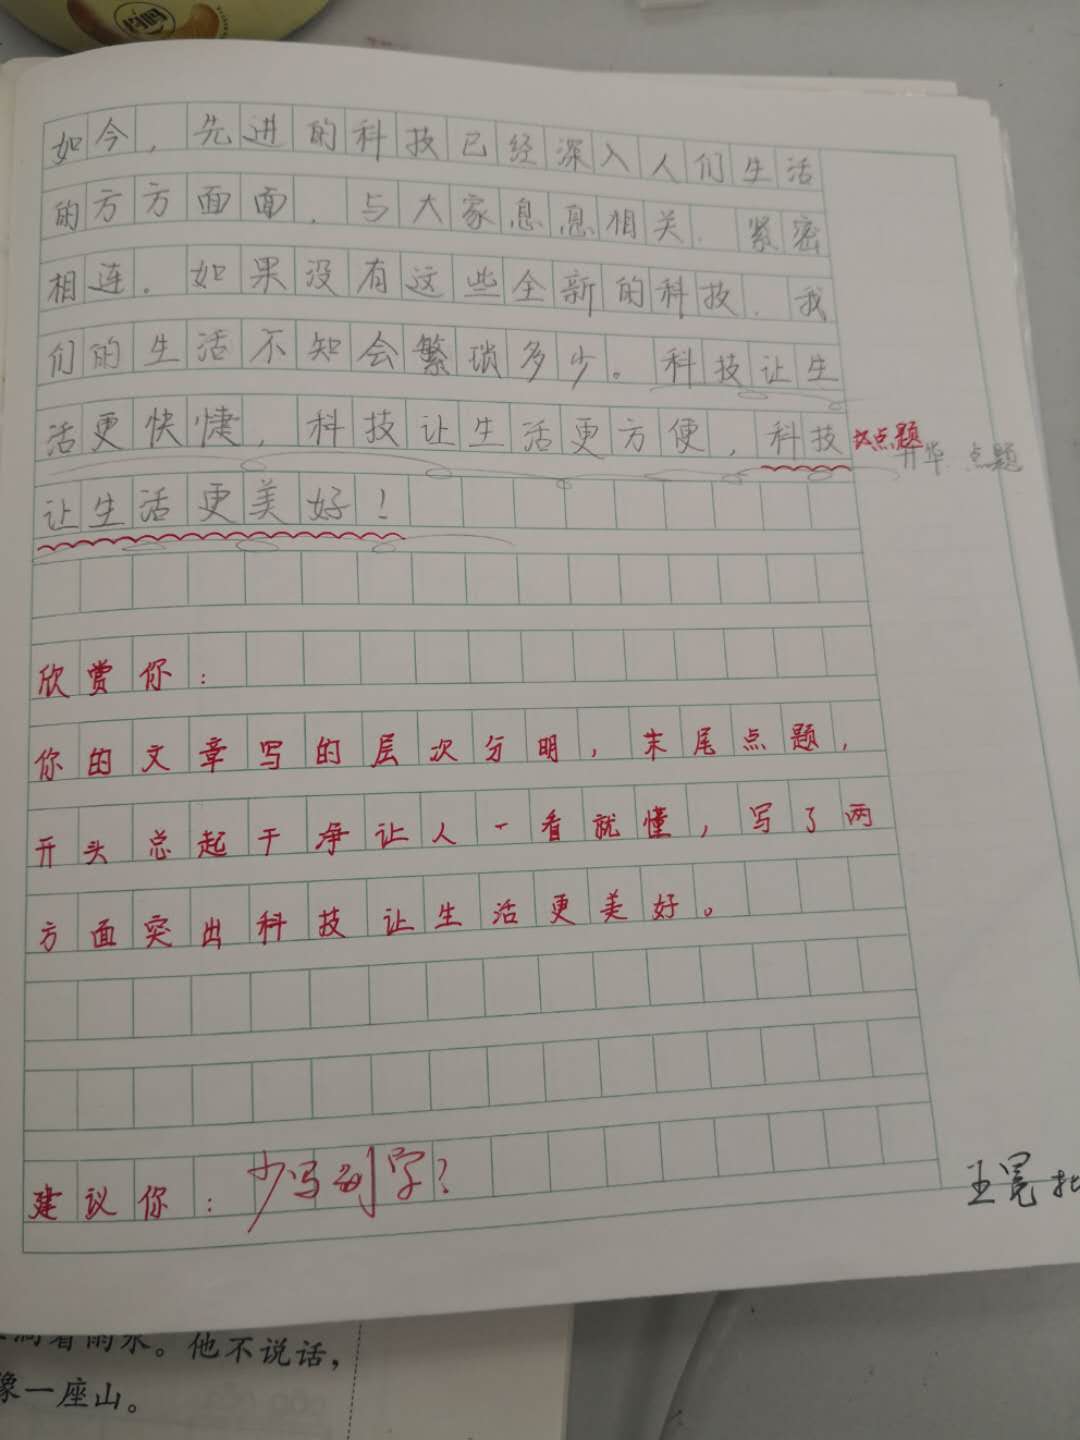 如今，先进的科技已经深入人们生活
的方方面面，与大家息息相关，紧密
相连。如果没有这些全新的科技，我
们的生活不知会繁琐多少。科技让生
活更快捷，科技让生活更方便，科技
点题
升华 点题
让生活更美好！
欣赏你：
你的文章写的层次分明，末尾点题，
开头总起干净让人一看就懂，写了两
方面突出科技让生活更美好。
建议你：少写别字？
王冕批
着雨水。他不说话，
像一座山。